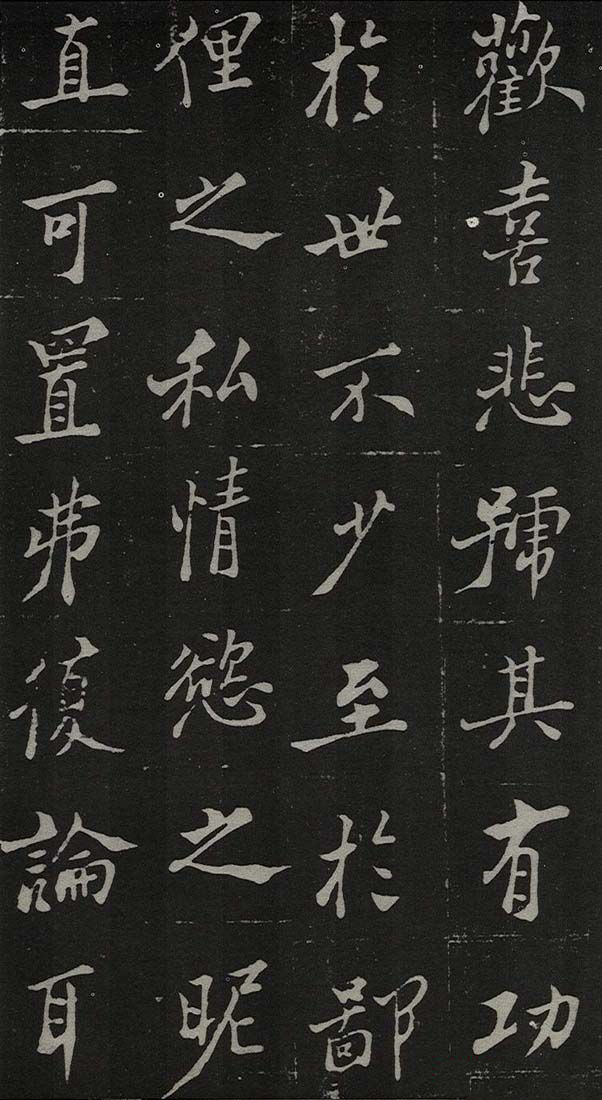 歡喜悲號其有功
於世不少至於鄙
俚之私情慾之昵
直可置弗復論耳